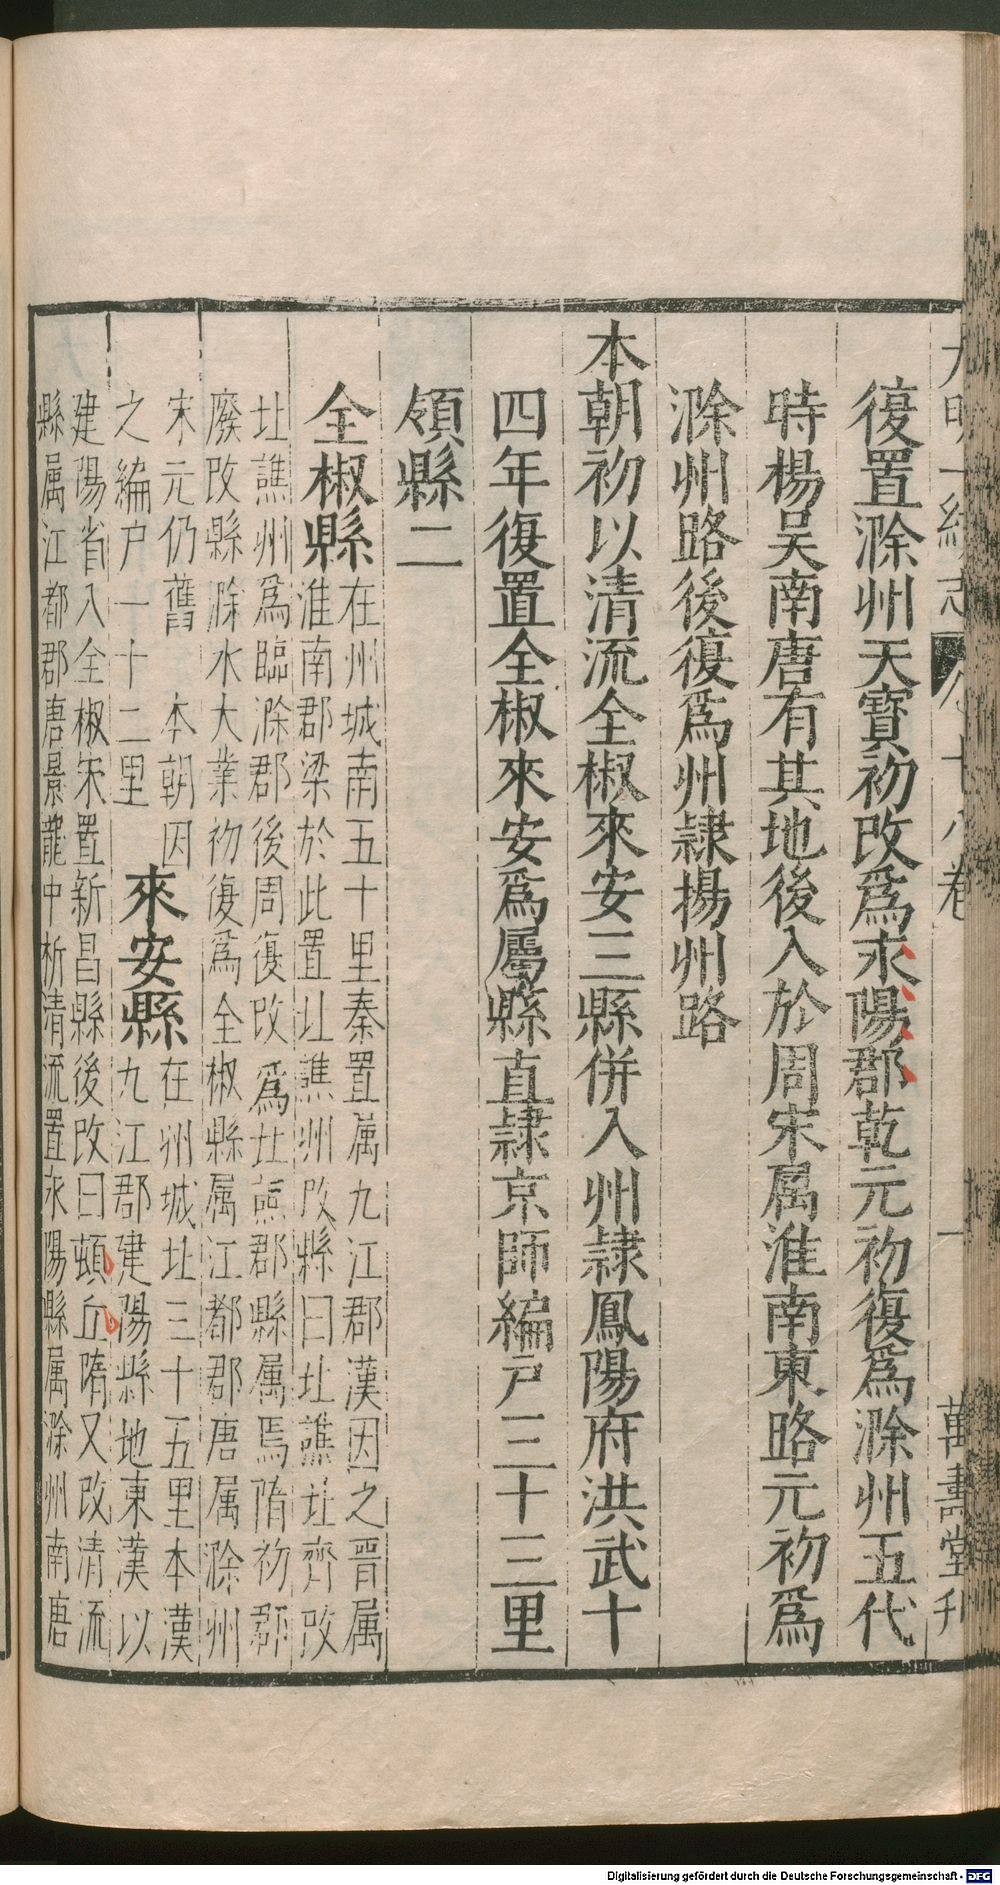 大明一統志 卷十八 一 萬壽堂刊
復置滁州天寶初改爲永陽郡乾元初復爲滁州五代
時楊吳南唐有其地後入於周宋属淮南東路元初爲
滁州路後復爲州隷揚州路
本朝初以清流全椒來安三縣併入州隷鳳陽府洪武十
四年復置全椒來安爲屬縣直隷京師編戸三十三里
領縣二
全椒縣
在州城南五十里秦置属九江郡漢因之晋属
淮南郡梁於此置北譙州改縣曰北譙北齊改
北譙州爲臨滁郡後周復改爲北譙郡縣属焉隋初郡
廢改縣滁水大業初復爲全椒縣属江都郡唐属滁州
宋元仍舊 本朝因
之編戸一十二里
來安縣
在州城北三十五里本漢
九江郡建陽縣地東漢以
建陽省入全椒宋置新昌縣後改曰頓丘隋又改清流
縣属江都郡唐景龍中析清流置永陽縣属滁州南唐
Digitalisierung gefördert durch die Deutsche Forschungsgemeinschaft - DFG